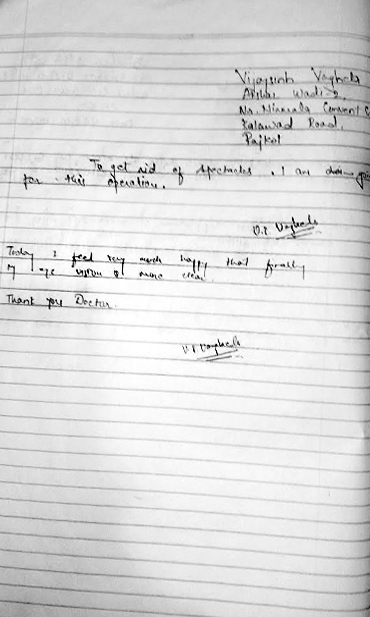 Vijaysinh Vaghela
Akshar Wadi-2,
Nr. Nirmala Convent
Kalawad Road,
Rajkot
To get rid of spectacles. I am
for this operation.
V.P. Vaghela
Today I feel very much happy that finally
my eye vision is more clear.
Thank you Doctor.
V.P. Vaghela